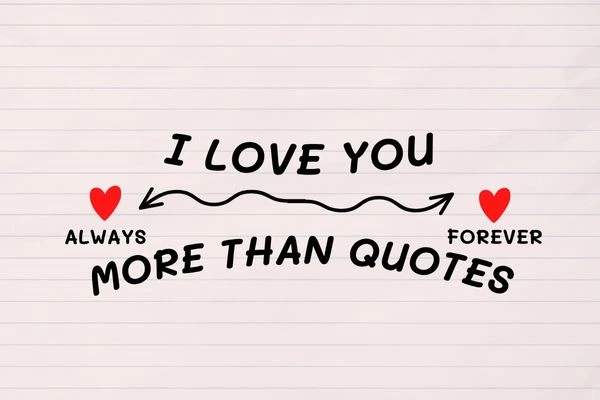 I LOVE YOU
ALWAYS
FOREVER
MORE THAN QUOTES